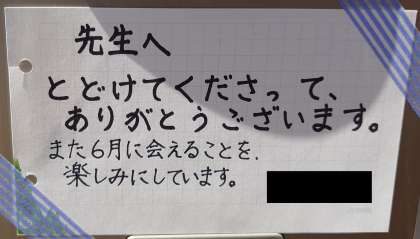 先生へ
とどけてくださって、
ありがとうございます。
また6月に会えることを、
楽しみにしています。